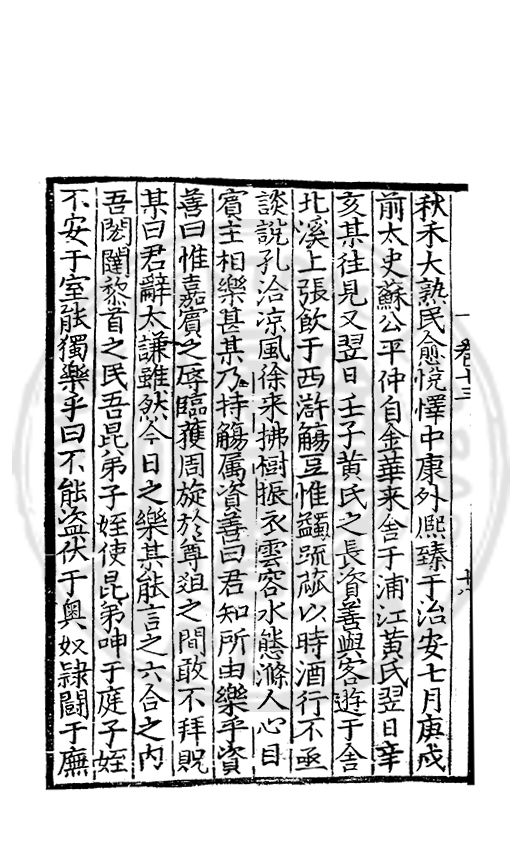 秋禾大熟民愈悅懌中康外熈臻于治安七月庚戍
前太史蘇公平仲自金華来舍于浦江黃氏翌日辛
亥某往見又翌日壬子黃氏之長資善與客遊于舍
北溪上張飲于西滸觴豆惟蠲䟽蓏以時酒行不亟
談說孔洽凉風徐来拂樹振衣雲容水態滌人心目
賓主相樂甚某乃持觴属資善曰君知所由樂乎資
善曰惟嘉賔之辱臨獲周旋於尊俎之間敢不拜貺
某曰君辭太謙雖然今日之樂某能言之六合之内
吾閭闥黎首之民吾昆弟子姪使昆弟呻于庭子姪
不安于室能獨樂乎曰不能盗伏于奥奴隷闘于廡
卷十三
十八